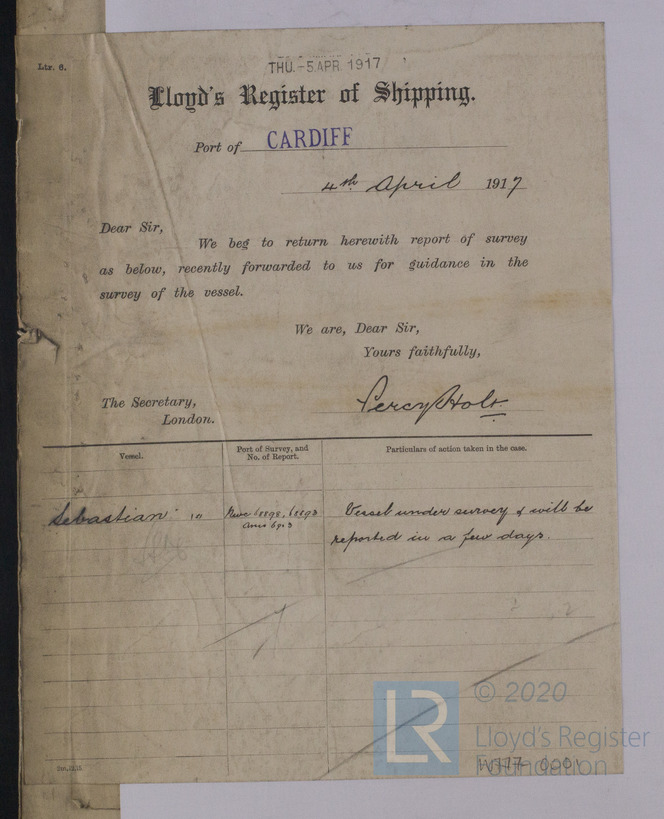 Ltr. 6.
THU. -5 APR. 1917
Lloyd's Register of Shipping.
Port of CARDIFF
4th April 1917
Dear Sir,
We beg to return herewith report of survey
as below, recently forwarded to us for guidance in the
survey of the vessel.
We are, Dear Sir,
Yours faithfully,
Percy Holt.
The Secretary,
London.
Vessel.
Port of Survey, and
No. of Report.
Particulars of action taken in the case.
"Sebastian"
Vessel under survey & will be
reported in a few days.
LR
© 2020
Lloyd's Register
Foundation